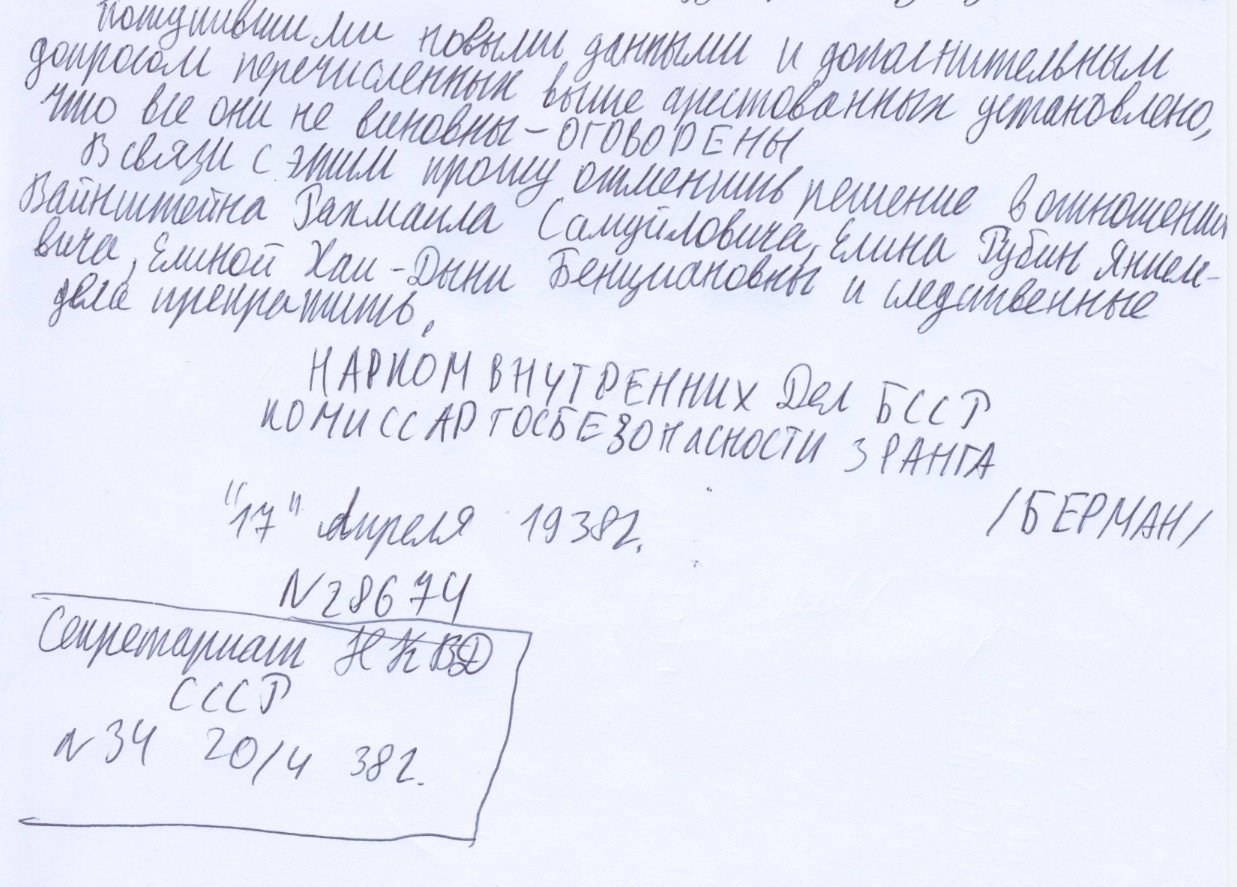 Поступившими новыми данными и дополнительным
допросом перечисленных выше арестованных установлено,
что все они не виновны – ОГОВОРЕНЫ
В связи с этим прошу отменить решение в отношении
Вайнштейна Рахмаила Самуйловича, Елина Рубин Янкеле-
вича, Елиной Хаи-Дыни Бенциановны и следственные
дела прекратить.
НАРКОМ ВНУТРЕННИХ Дел БССР
КОМИССАР ГОСБЕЗОПАСНОСТИ 3 РАНГА
"17" Апреля 1938г.
/БЕРМАН/
N28674
Секретариат НКВД
СССР
N34 20/4 38г.